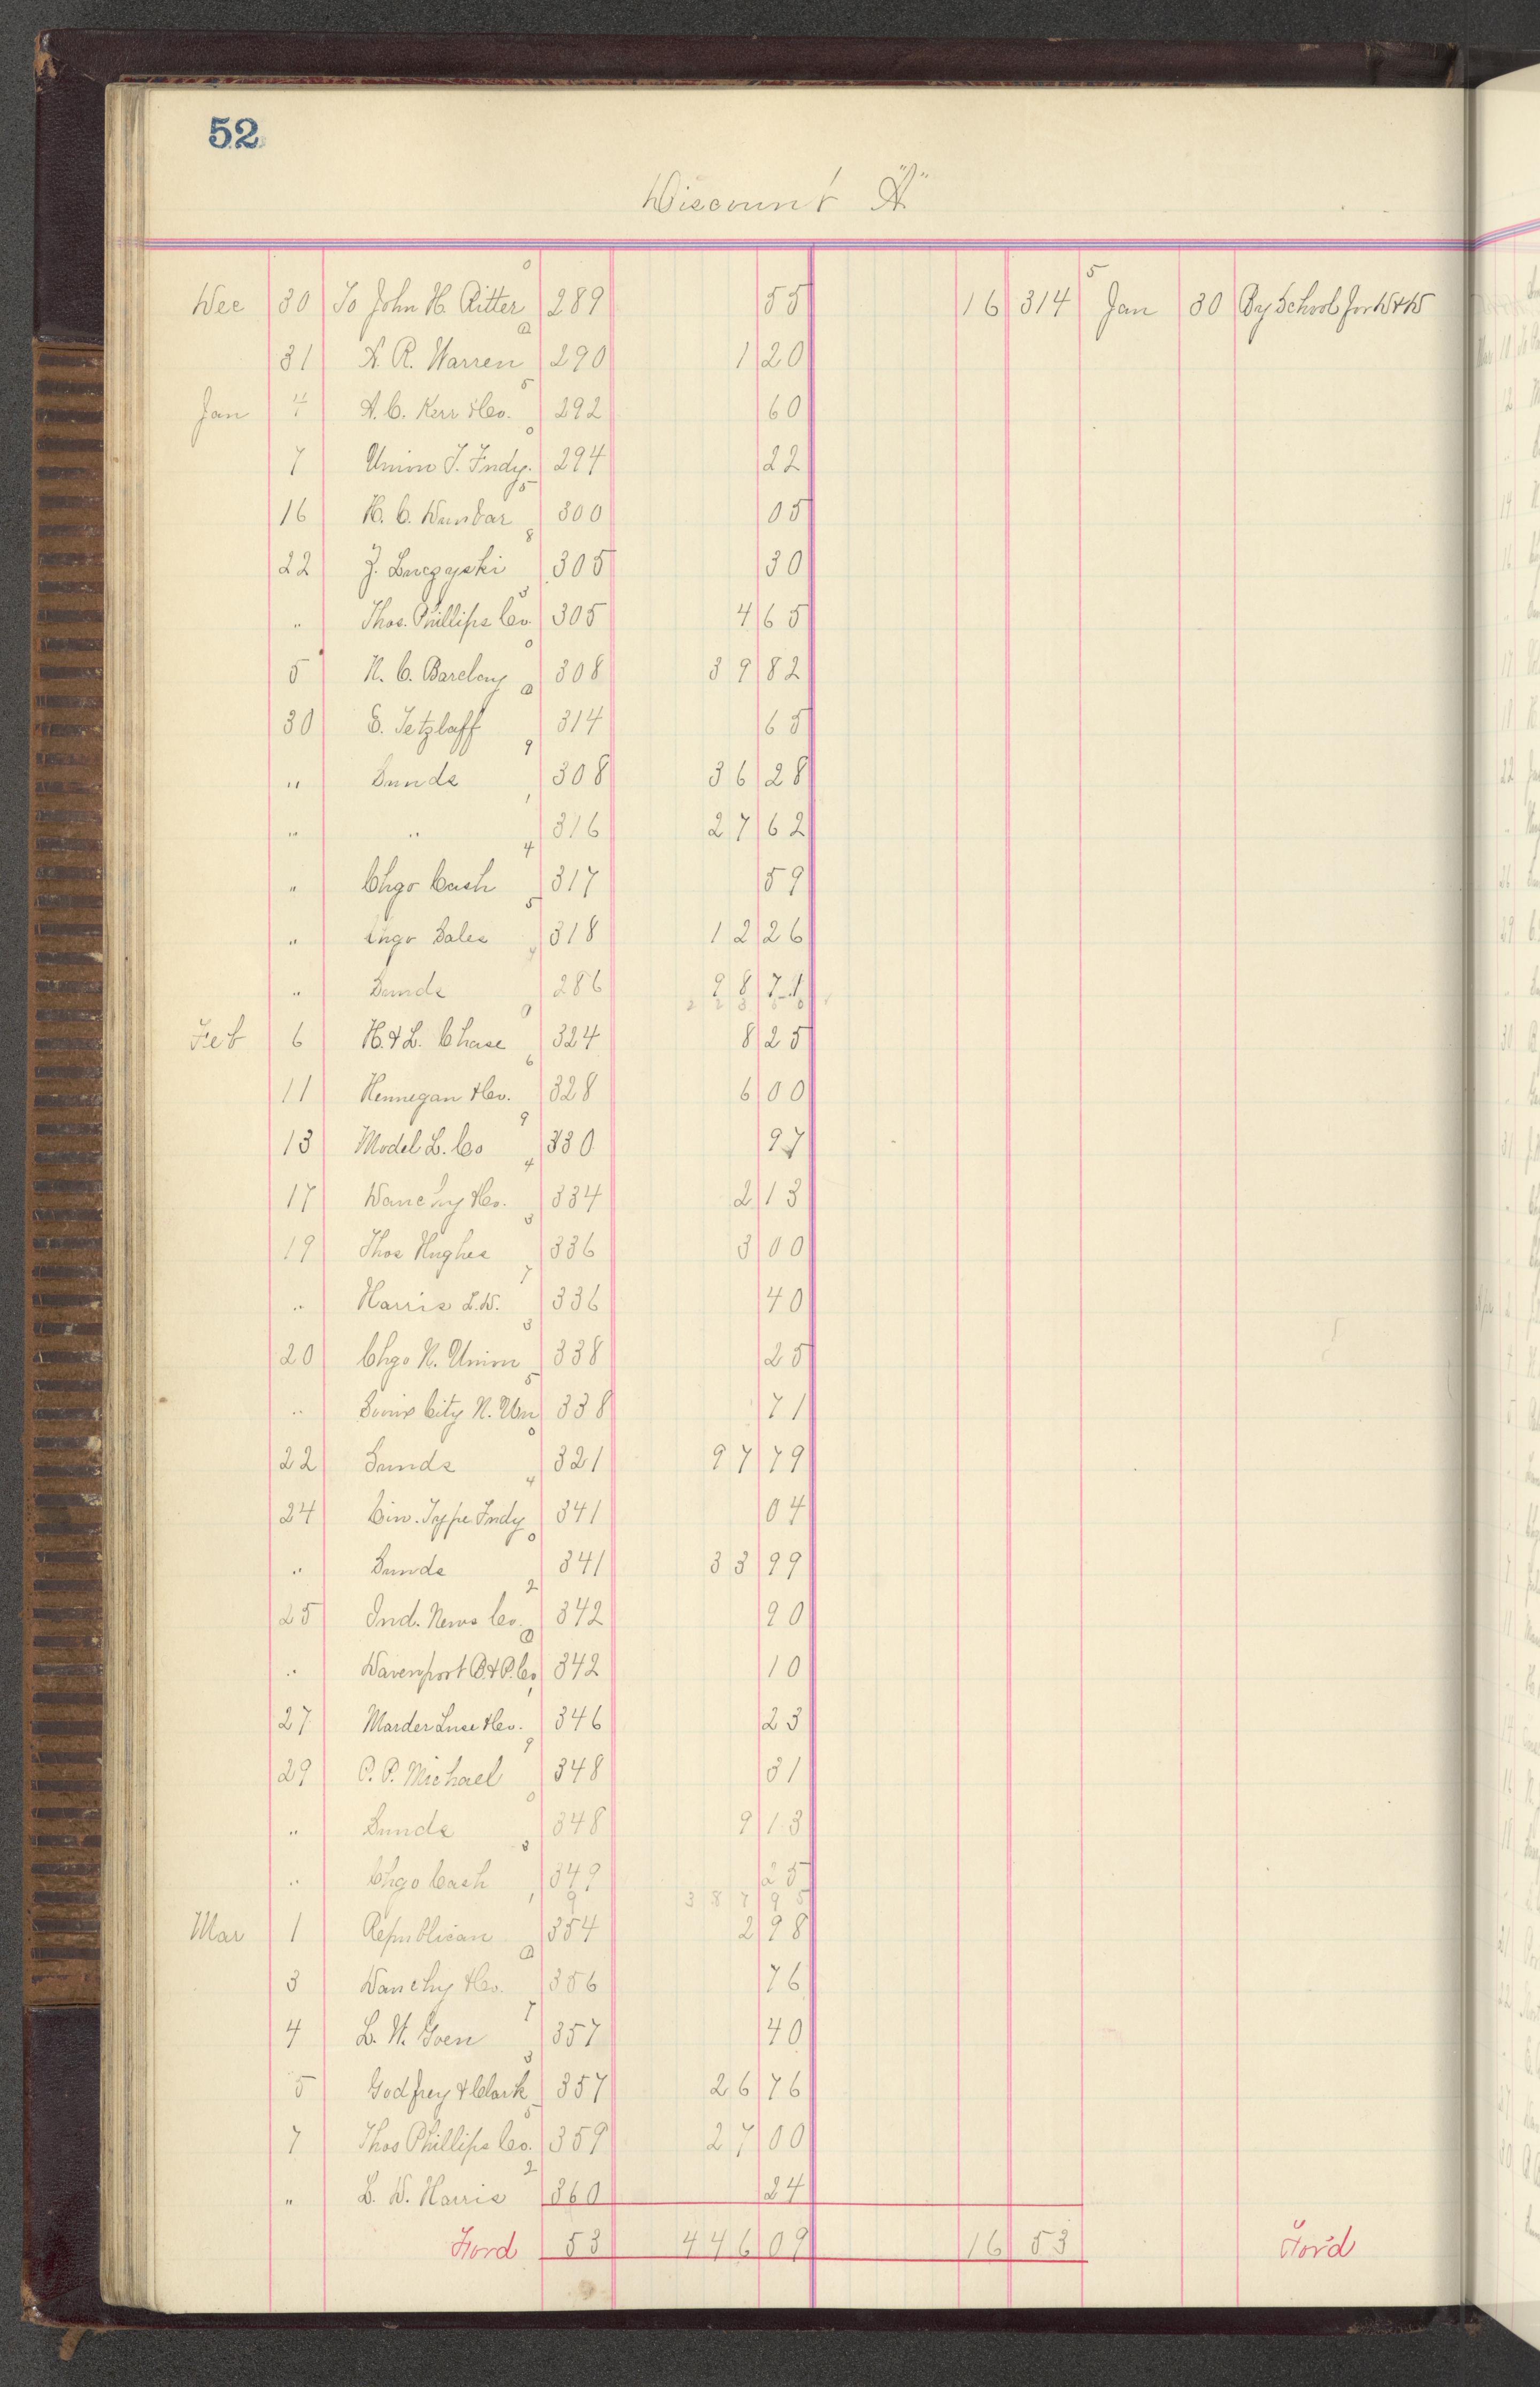 52
Discount "A"
Dec 30 To John H. Ritter 289 55 16 314 Jan 30 By School for D & D
31 A. R. Warren 290 1 20
Jan 4 A. C. Kerr & Co. 292 60
7 Union T. Fndy. 294 22
16 H. C. Dunbar 300 05
22 J. 305 30
" Thos. Phillips Co. 305 4 65
5 N. C. Barclay 308 39 82
30 E. Tetzlaff 314 65
" Sunds 308 36 28
" " 316 27 62
" Chgo Cash 317 59
" Chgo Sales 318 12 26
" Sunds 286
Feb 6 H. & L. Chase 324 8 25
11 Hennegan & Co. 328 6 00
13 Model L. Co 330 97
17 Danchy & Co. 334 2 13
19 Thos Hughes 336 3 00
" Harris L. D. 336 40
20 Chgo N. Union 338 25
" Sioux City N. Un 338 71
22 Sunds 321 97 79
24 Cin. Type Fndy 341 04
" Sunds 341 33 99
25 Ind. News Co. 342 90
" Davenport B. & P. Co 342 10
27 Marder Luse & Co. 346 23
29 C. P. Michael 348 31
" Sunds 348 9 13
" Chgo Cash 349 25
387 95
Mar 1 Republican 354 2 98
3 Danchy & Co. 356 76
4 L. W. Goen 357 40
5 Godfrey & Clark 357 26 76
7 Thos Phillips Co. 359 27 00
" L. D. Harris 360 24
Ford 53 446 09 16 53 For'd